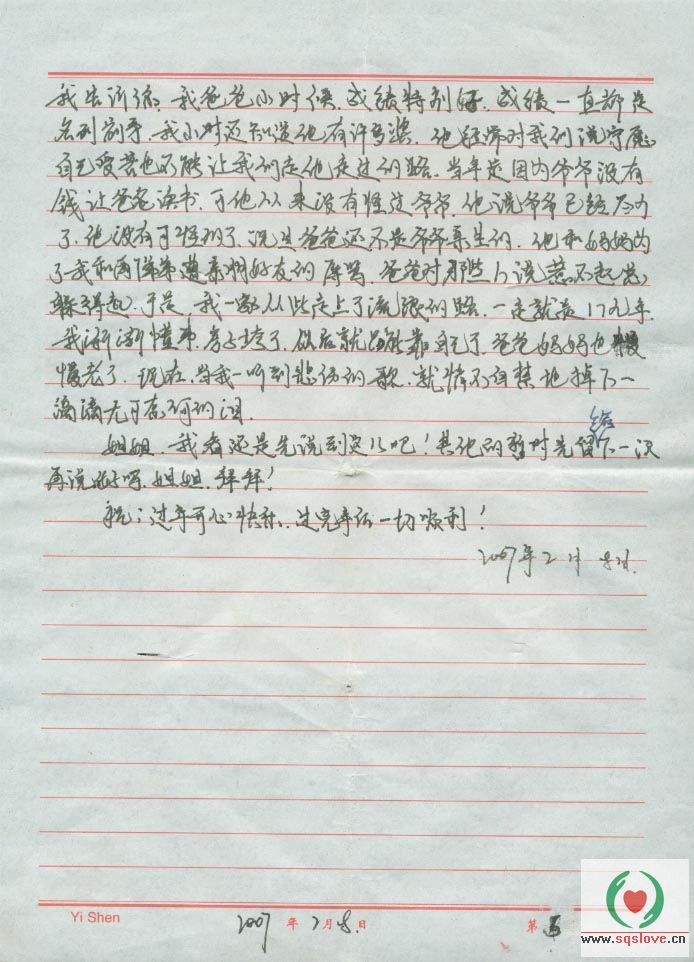 我告诉你,我爸爸小时候,成绩特别好,成绩一直都是
名列前茅,我小时还知道他有许多奖。他经常对我们说宁愿
自己受苦也不能让我们走他走过的路。当年是因为爷爷没有
钱让爸爸读书,可他从来没有怪过爷爷,他说爷爷已经尽力
了,他没有可怪的了,况且爸爸还不是爷爷亲生的,他和妈妈为
了我和两弟弟遭亲朋好友的辱骂,爸爸对那些人说惹不起总
躲得起,于是,我一家从此走上了流浪的路,一走就是
我渐渐懂事,房子垮了,以后就只能靠自己了,爸爸妈妈也慢
慢老了,现在,当我一听到悲伤的歌,就情不自禁地掉下一
滴滴无可奈何的泪。
姐姐,我看还是先说到这儿吧!其他的暂时先留给下一次
再说好吗,姐姐,拜拜!
祝:过年开心快乐,过完年后一切顺利!
2007年2月8日.
Yi Shen 2007年2月8日 第5
www.sqslove.cn